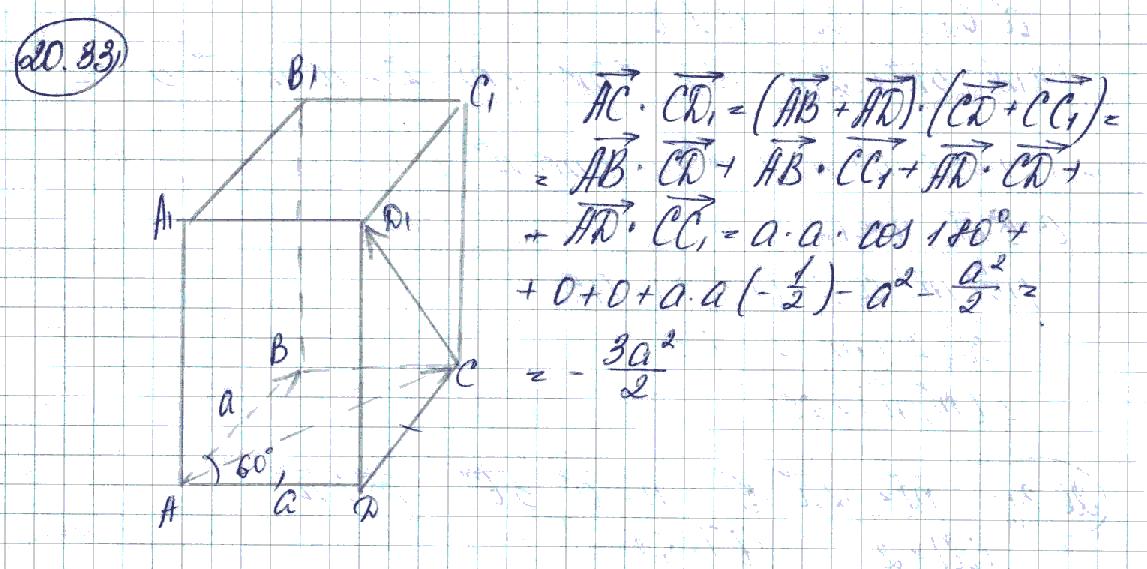 20.33
B₁
C₁
A₁
D₁
B
C
a
60°
A
a
D
$\overrightarrow{AC} \cdot \overrightarrow{CD_1} = (\overrightarrow{AB} + \overrightarrow{AD}) \cdot (\overrightarrow{CD} + \overrightarrow{CC_1}) =$
$= \overrightarrow{AB} \cdot \overrightarrow{CD} + \overrightarrow{AB} \cdot \overrightarrow{CC_1} + \overrightarrow{AD} \cdot \overrightarrow{CD} +$
$+ \overrightarrow{AD} \cdot \overrightarrow{CC_1} = a \cdot a \cdot \cos 180° +$
$+ 0 + 0 + a \cdot a \left(-\frac{1}{2}\right) - a^2 - \frac{a^2}{2} =$
$= -\frac{3a^2}{2}$